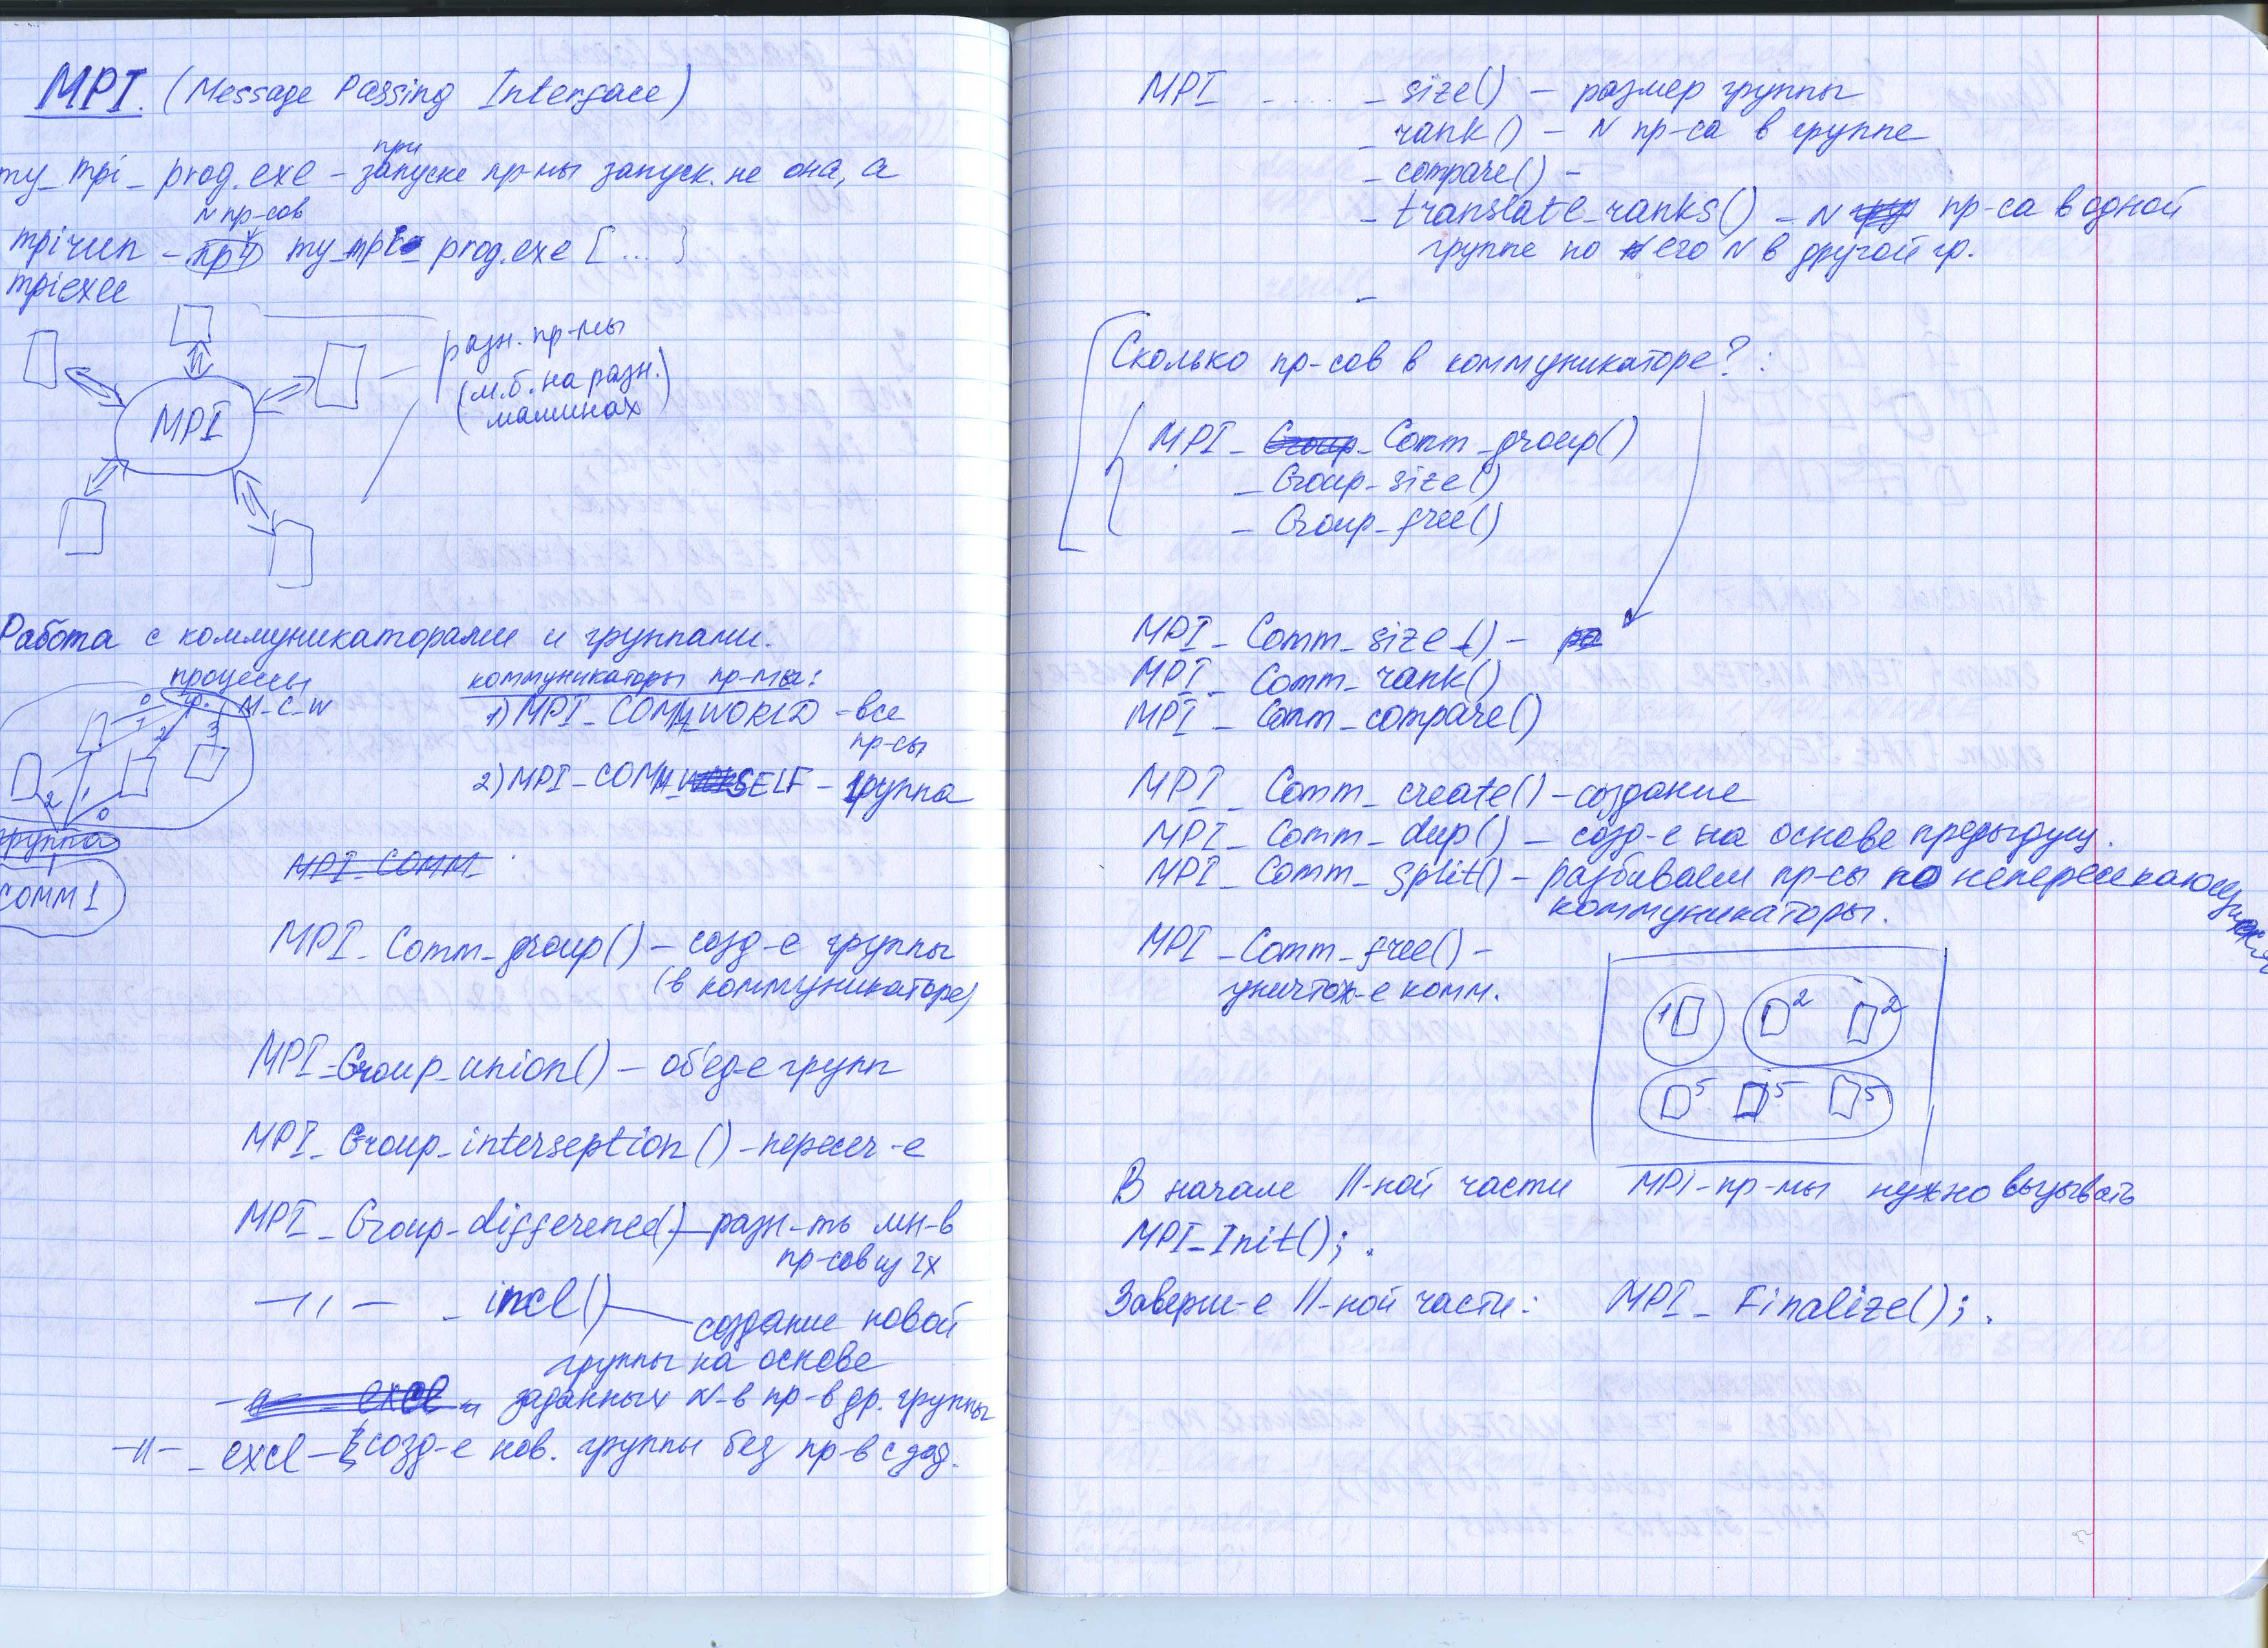 MPI. (Message Passing Interface)
при
my_mpi_prog.exe – запуске пр-мы запуск. не она, а
N пр-сов
mpirun -np 4 my_mpi_prog.exe [...]
mpiexec
разн. пр-мы
(м.б. на разн.
машинах)
MPI
Работа с коммуникаторами и группами.
процессы
коммуникаторы пр-мы:
0 1 2 3 M_C_W
1) MPI_COMM_WORLD – все
пр-сы
2) MPI_COMM_SELF – группа
2 1 0
группа
COMM 1
MPI_COMM_
MPI_Comm_group() – созд-е группы
(в коммуникаторе)
MPI_Group_union() – об'ед-е групп
MPI_Group_interseption() – пересеч-е
MPI_Group_difference() – разн-ть мн-в
пр-сов из 2х
–〃– _incl() – создание новой
группы на основе
–〃– _excl – заданных N-в пр-в др. группы
–〃– _excl – созд-е нов. группы без пр-в с зад.
MPI ..... _size() – размер группы
_rank() – N пр-са в группе
_compare() –
_translate_ranks() – N пр-са в одной
группе по его N в другой гр.
–
Сколько пр-сов в коммуникаторе? :
MPI_Group_Comm_group()
_Group_size()
_Group_free()
MPI_Comm_size() –
MPI_Comm_rank()
MPI_Comm_compare()
MPI_Comm_create() – создание
MPI_Comm_dup() – созд-е на основе предыдущ.
MPI_Comm_split() – разбиваем пр-сы по непересекающимся
коммуникаторы.
MPI_Comm_free() –
уничтож-е комм.
1 2 2
5 5 5
В начале //-ной части MPI-пр-мы нужно вызывать
MPI_Init(); .
Заверш-е //-ной части: MPI_Finalize(); .